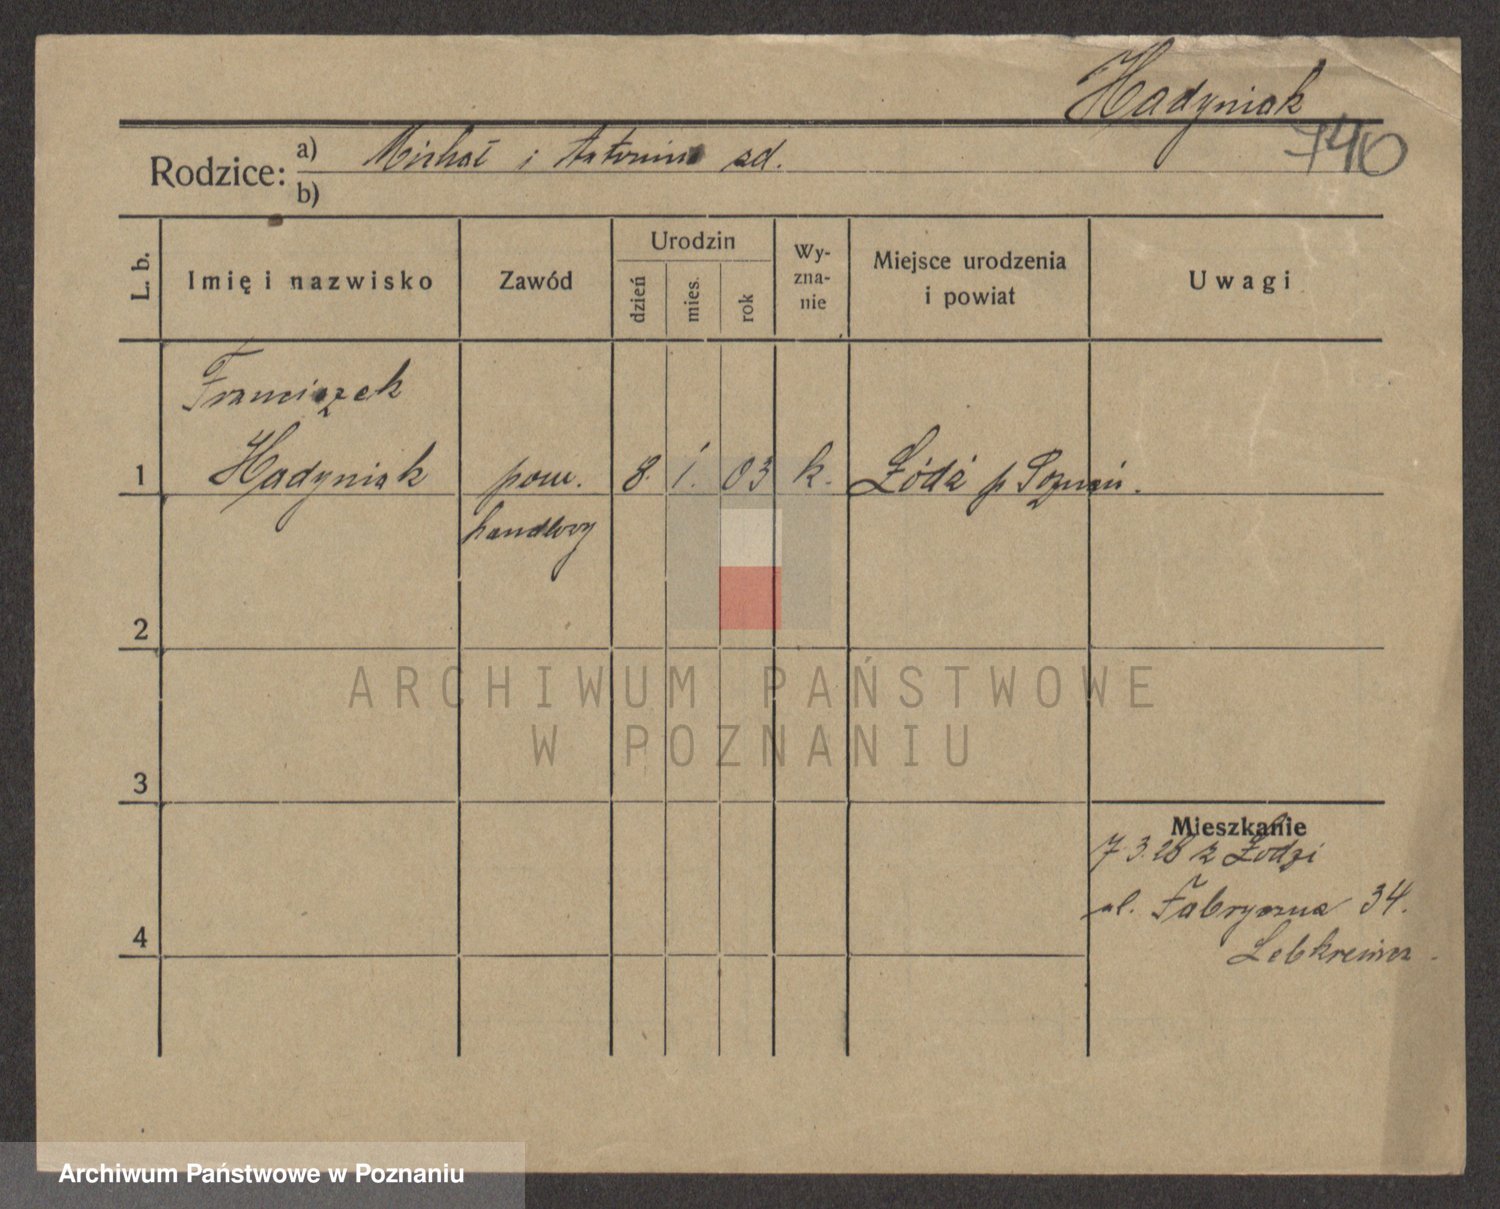 Hadyniak
740
Rodzice: a) Michał i Antonina zd.
b)
L. b.
Imię i nazwisko
Zawód
Urodzin
dzień
mies.
rok
Wy-
zna-
nie
Miejsce urodzenia
i powiat
Uwagi
Franciszek
1 Hadyniak pom. 8. 1. 03 k. Łódź p Poznań.
handlowy
2
ARCHIWUM PAŃSTWOWE
W POZNANIU
3
Mieszkanie
7.3.26 z Łodzi
ul. Fabryczna 34.
4
Archiwum Państwowe w Poznaniu